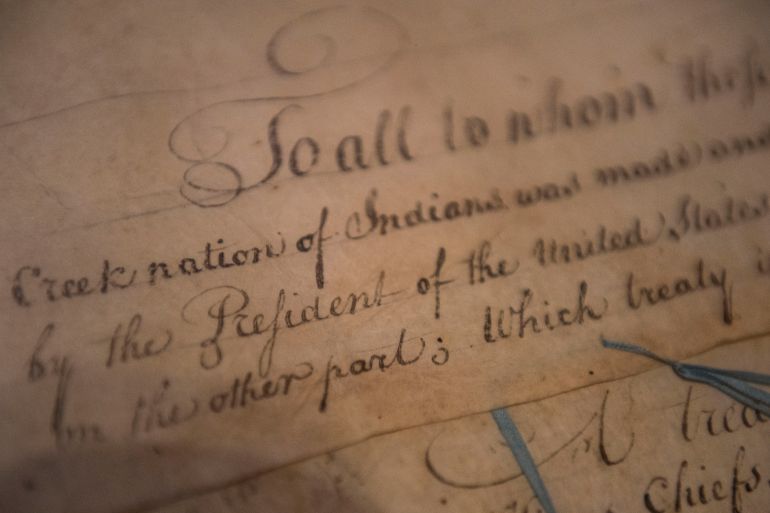 To all to whom these
Creek nation of Indians was made and
by the President of the United States
on the other part; Which treaty is
A trea
Chiefs